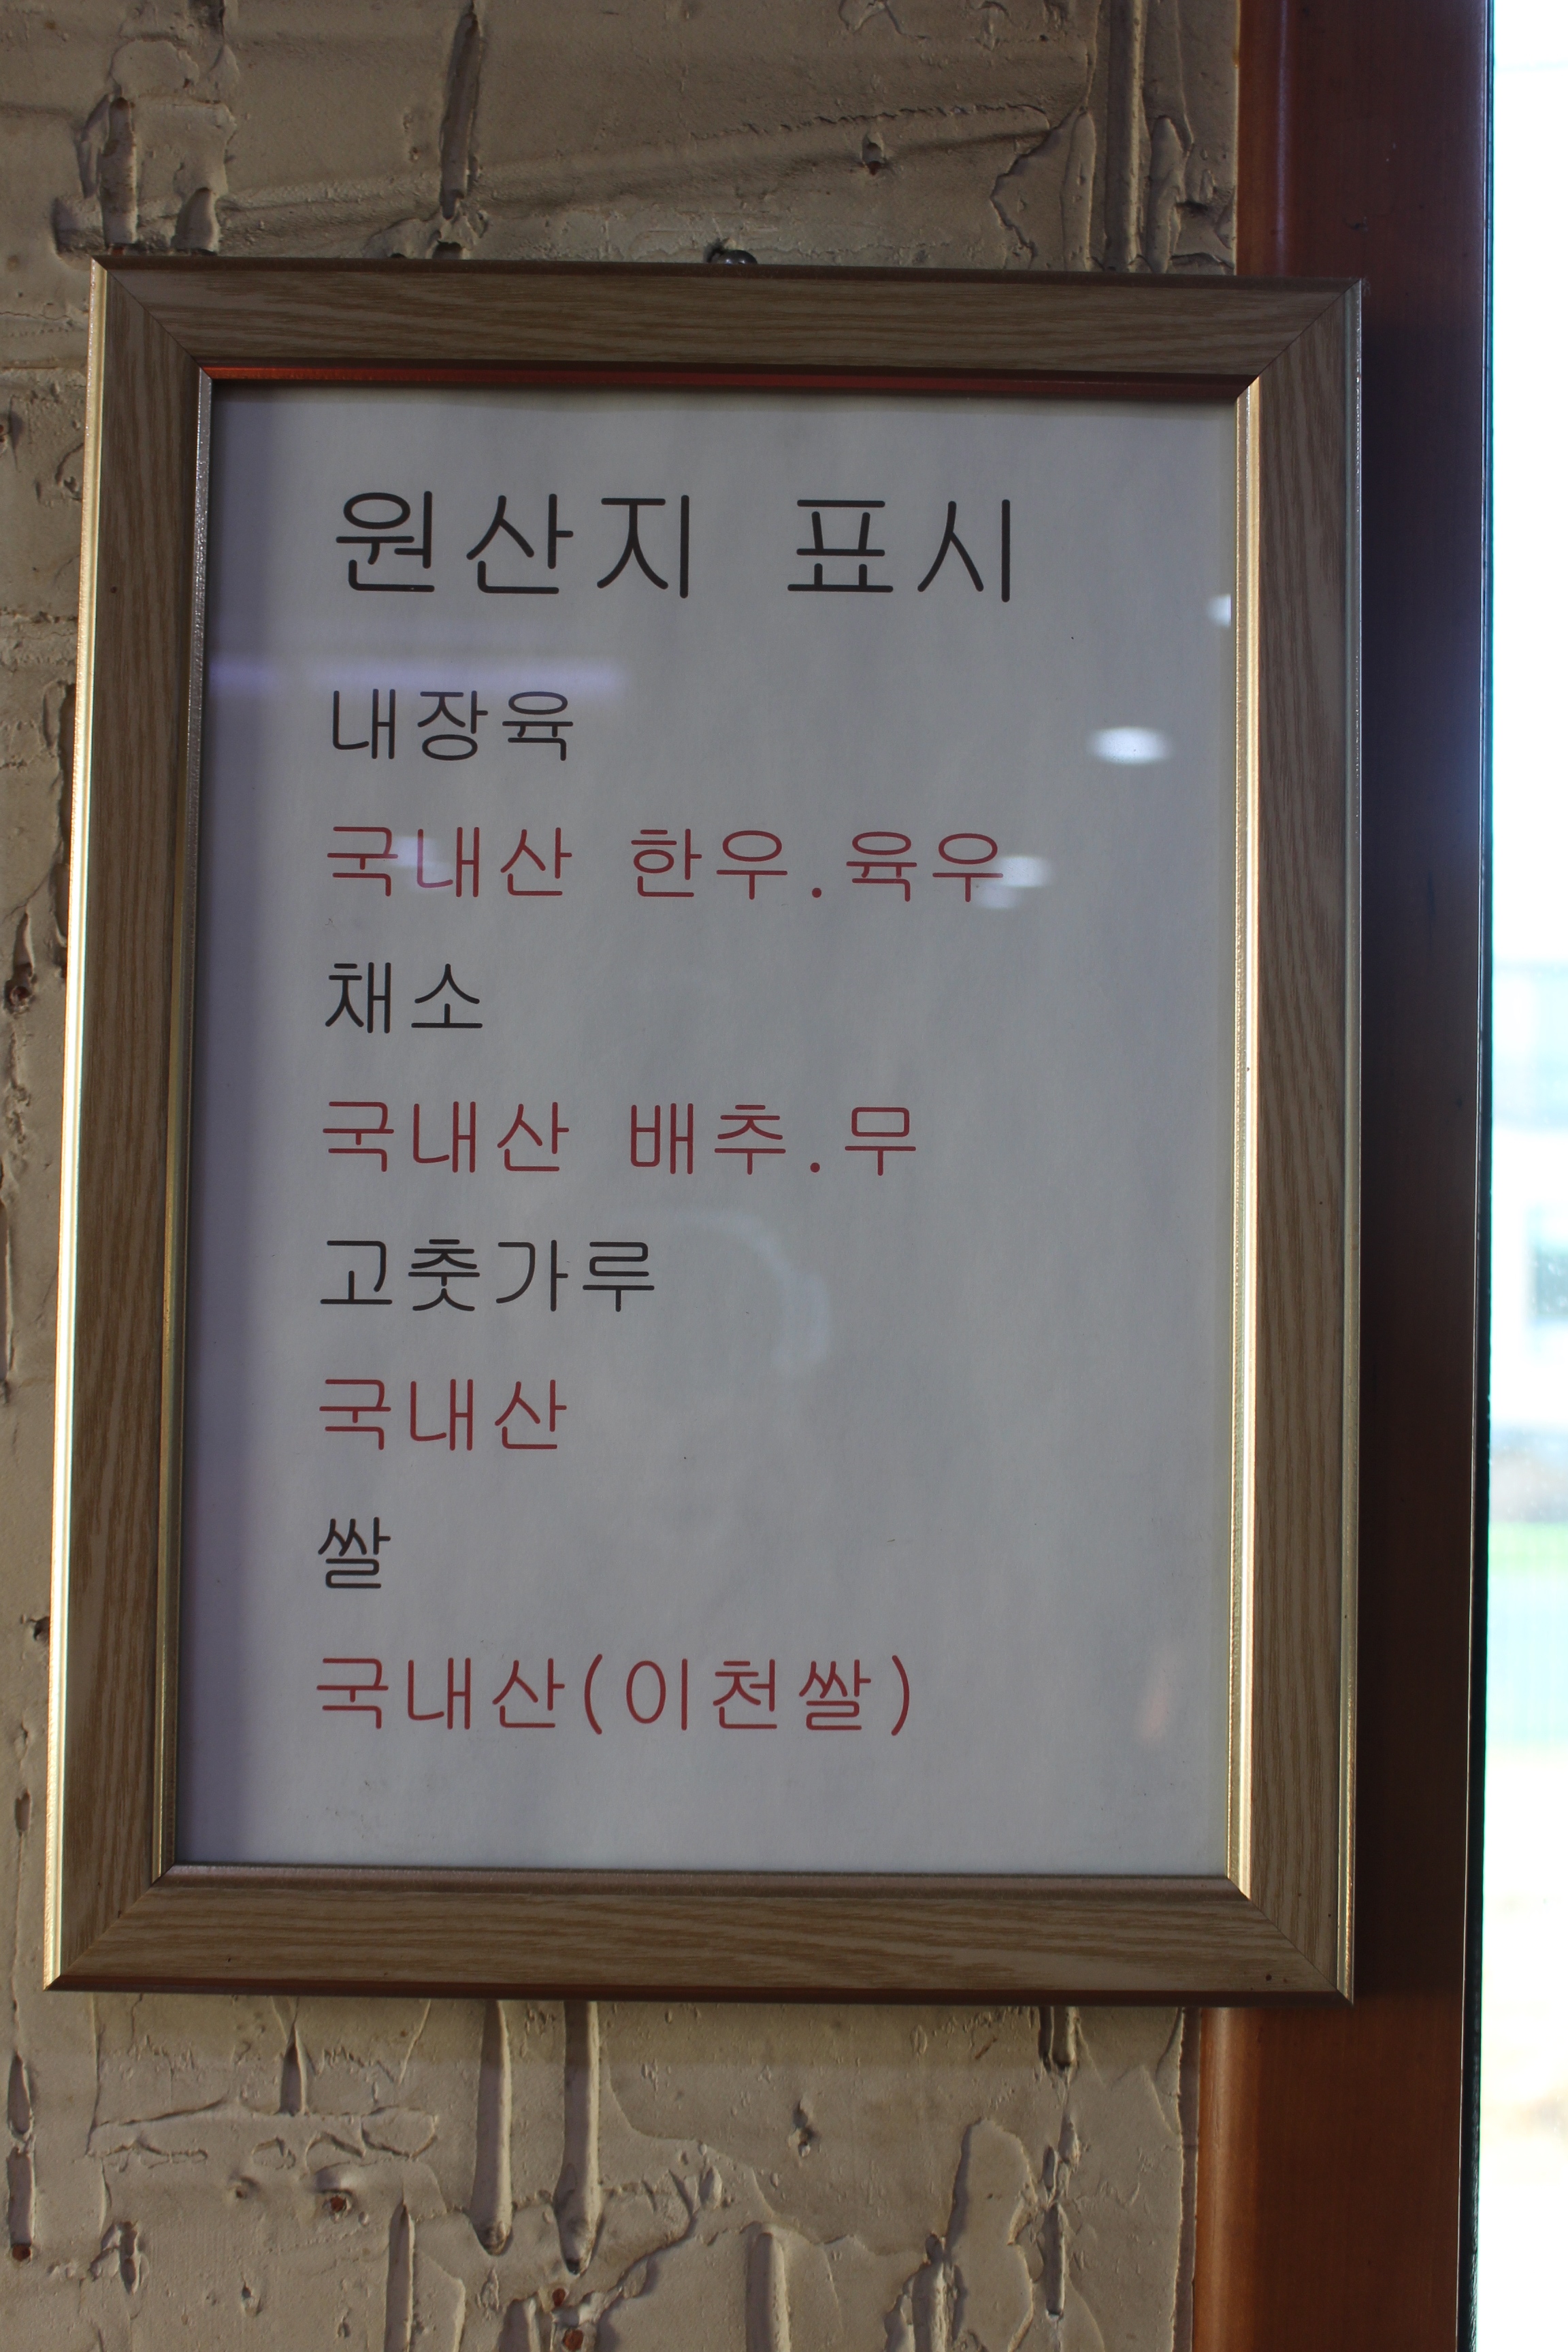 원산지 표시
내장육
국내산 한우.육우
채소
국내산 배추.무
고춧가루
국내산
쌀
국내산(이천쌀)